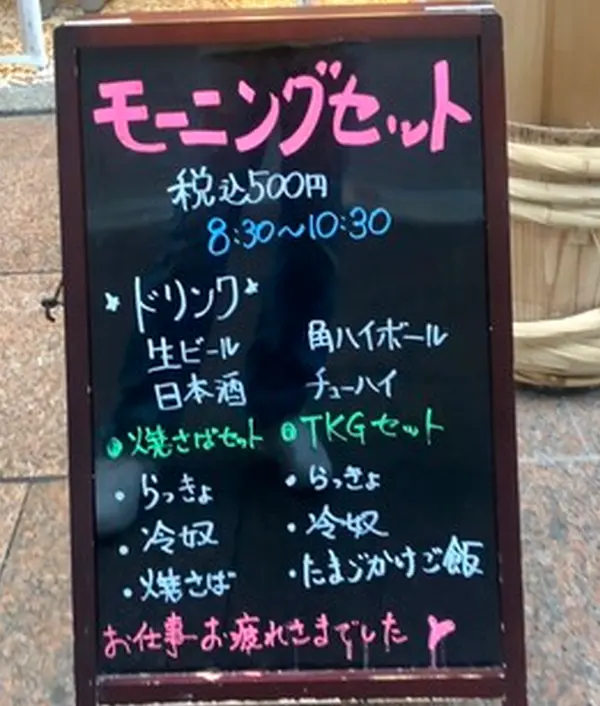 モーニングセット
税込500円
8:30～10:30
*ドリンク*
生ビール 角ハイボール
日本酒 チューハイ
焼さばセット TKGセット
・らっきょ ・らっきょ
・冷奴 ・冷奴
・焼さば ・たまごかけご飯
お仕事お疲れさまでした